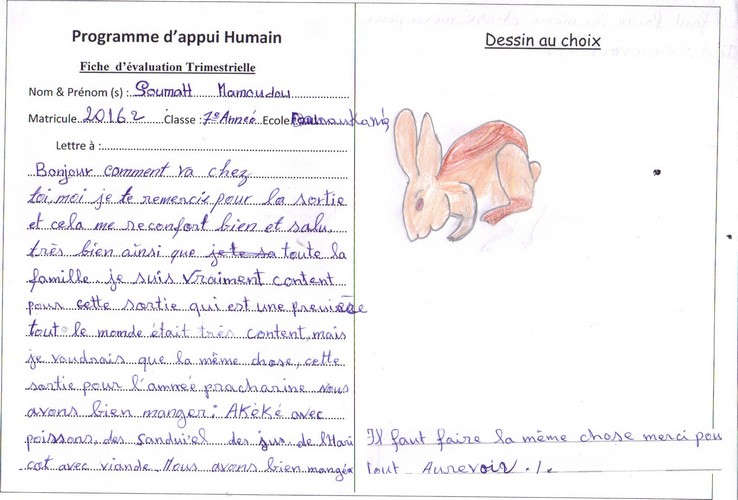 Programme d'appui Humain
Fiche d'évaluation Trimestrielle
Nom & Prénom (s) : Soumah Mamoudou
Matricule 20162 Classe : 7e Année Ecole
Lettre à :
Bonjour comment va chez
toi, moi je te remercie pour la sortie
et cela me reconfort bien et salu
très bien ainsi que je te sa toute la
famille je suis vraiment content
pour cette sortie qui est une première
tout le monde était très content, mais
je voudrais que la même chose, cette
sortie pour l'année prochaine nous
avons bien manger : AKèKé avec
poissons, des des jus de l'Hari
cot avec viande. Nous avons bien manger
Dessin au choix
Il faut faire la même chose merci pour
tout Aurevoir . / .